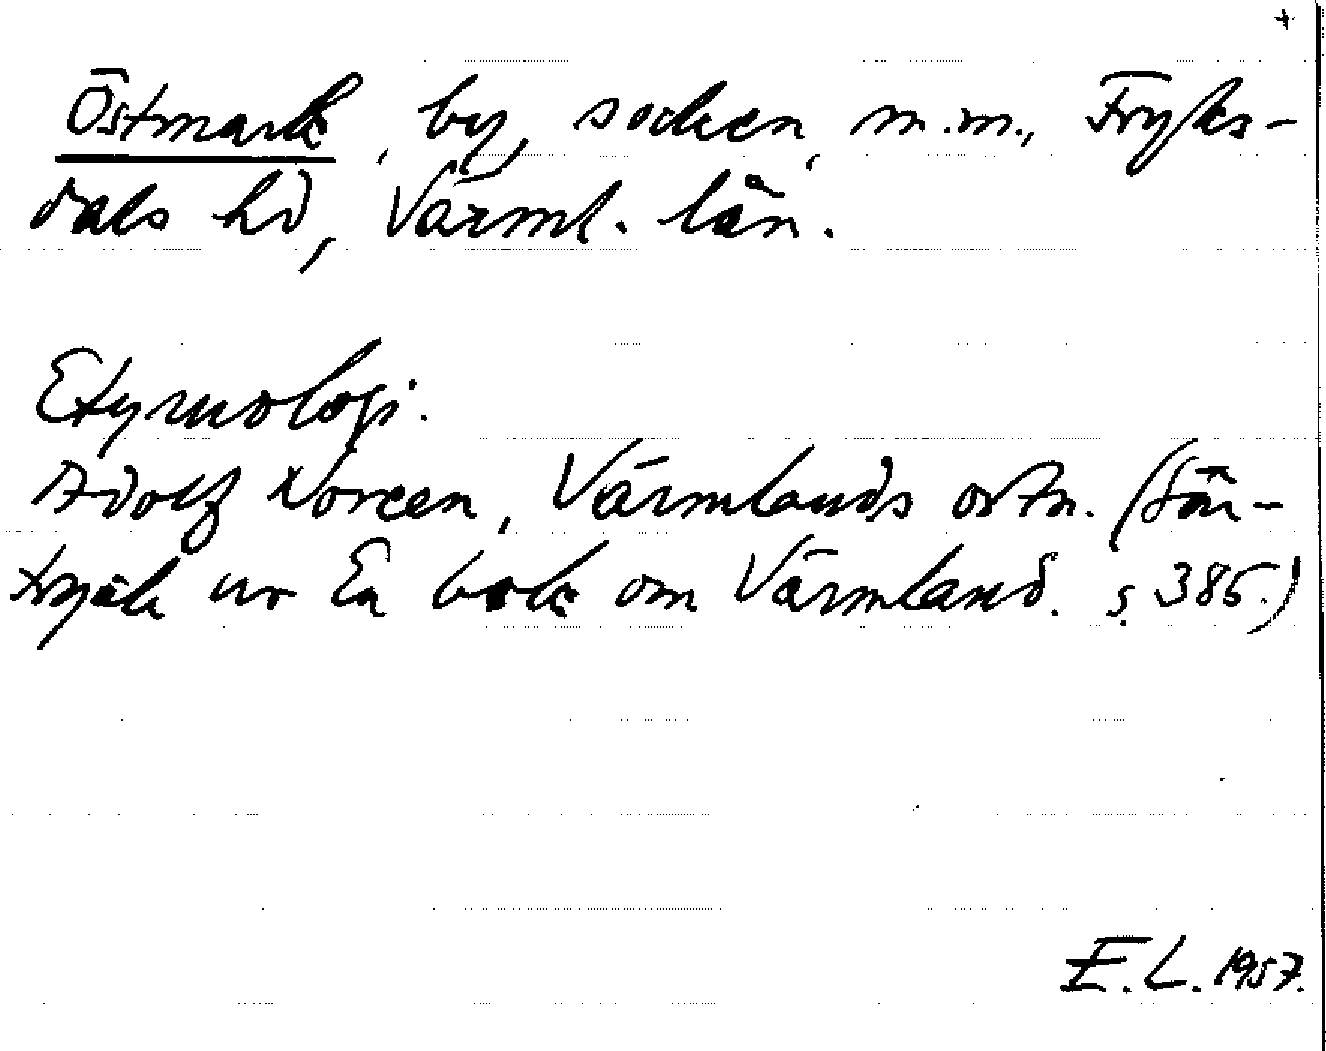 +
Östmark, by, socken, m.m., Fryks-
dals hd, Värml. län.
Etymologi.
Adolf Noreen, Värmlands ortn. (Sär-
tryck ur En bok om Värmland. s. 385.)
E.L. 1957.